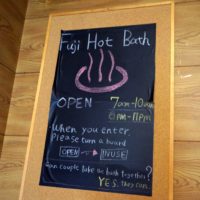 Fuji Hot Bath
OPEN 7am-10am
8pm-11pm
When you enter,
Please turn a board
OPEN → INUSE
Can couple take the bath together?
YES. they can.